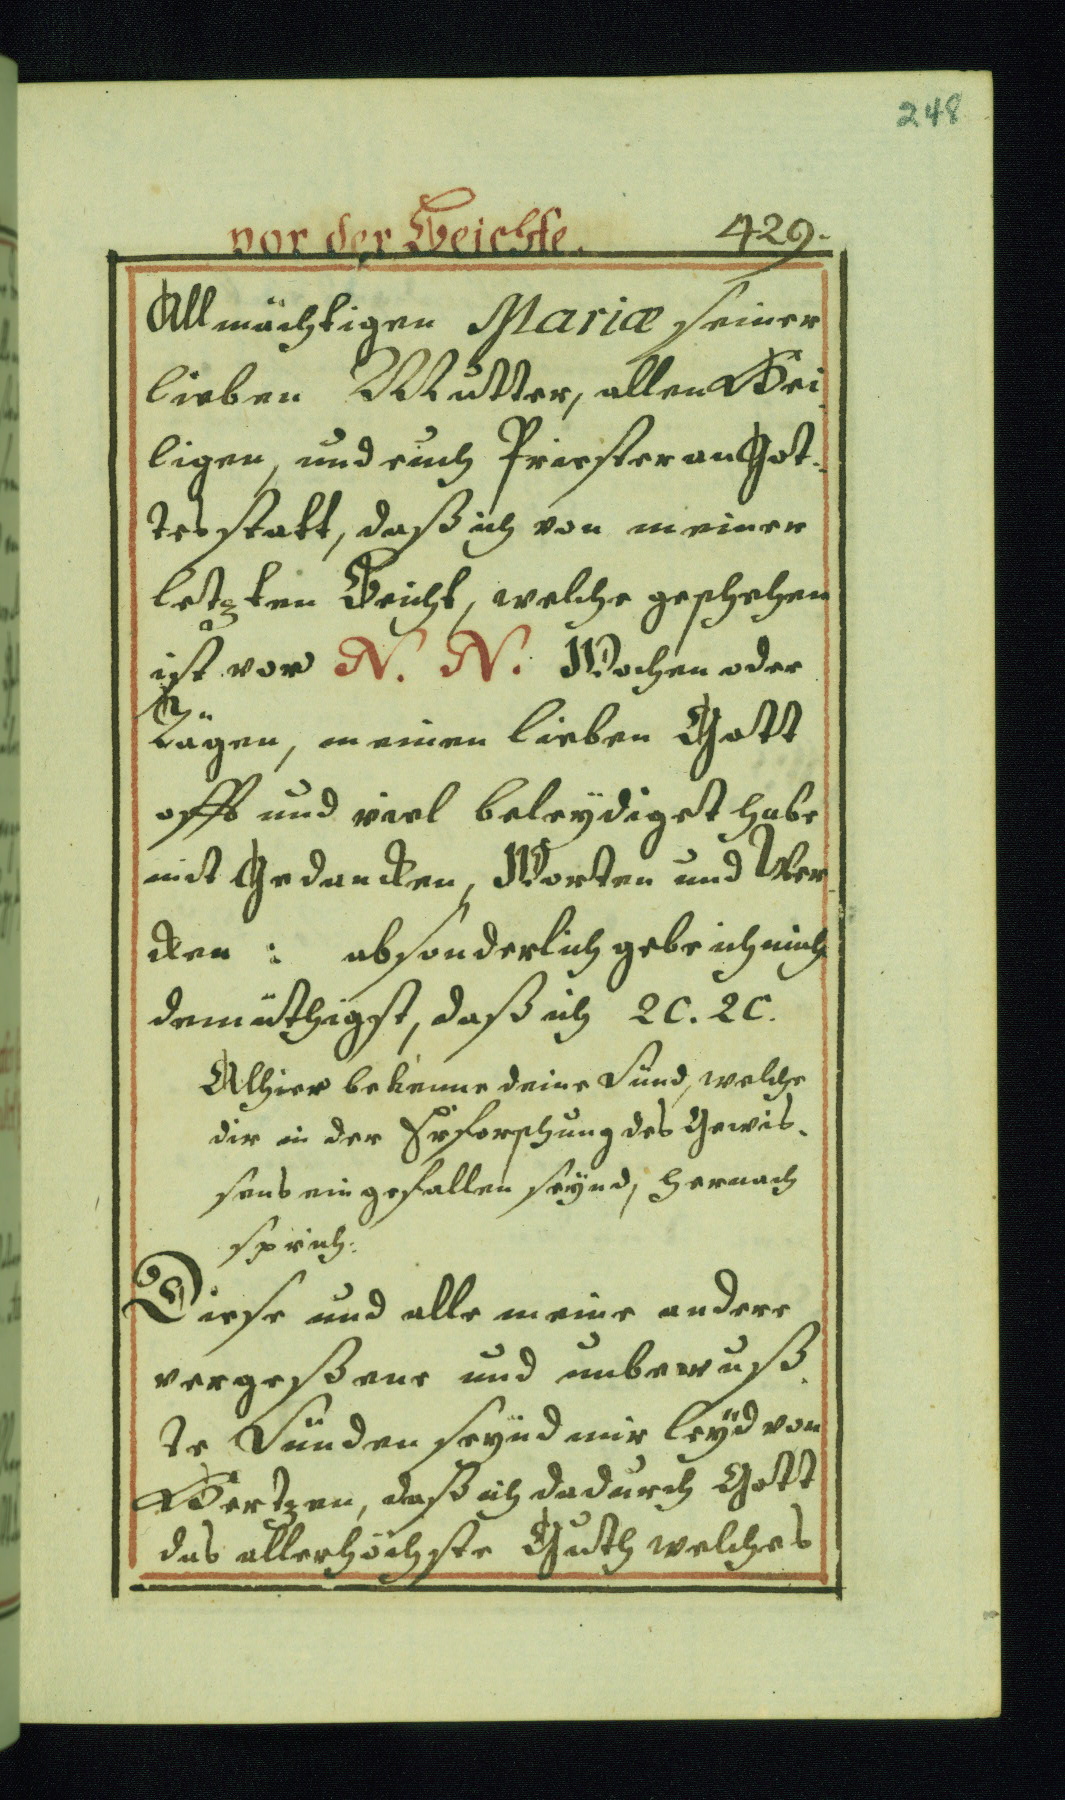 248
vor der Beichte. 429.
Allmächtigen Mariæ seiner
lieben Mutter, allen Hei
ligen, und euch Priester an Got-
tes statt, daß ich von meiner
letzten Beicht, welche geschehen
ist vor N. N. Wochen oder
Tägen, meinen lieben Gott
offt und viel beleÿdiget habe
mit Gedancken, Worten und Wer
cken: absonderlich gebe ich mich
demüthigst, daß ich ꝛc. ꝛc.
Alhier bekenne deine Sünd, welche
dir in der Erforschung des Gewis-
sens eingefallen seÿnd, hernach
sprich:
Diese und alle meine andere
vergeßene und unbewuß-
te Sünden seÿnd mir leÿd von
Hertzen, daß ich dadurch Gott
das allerhöchste Guth welches